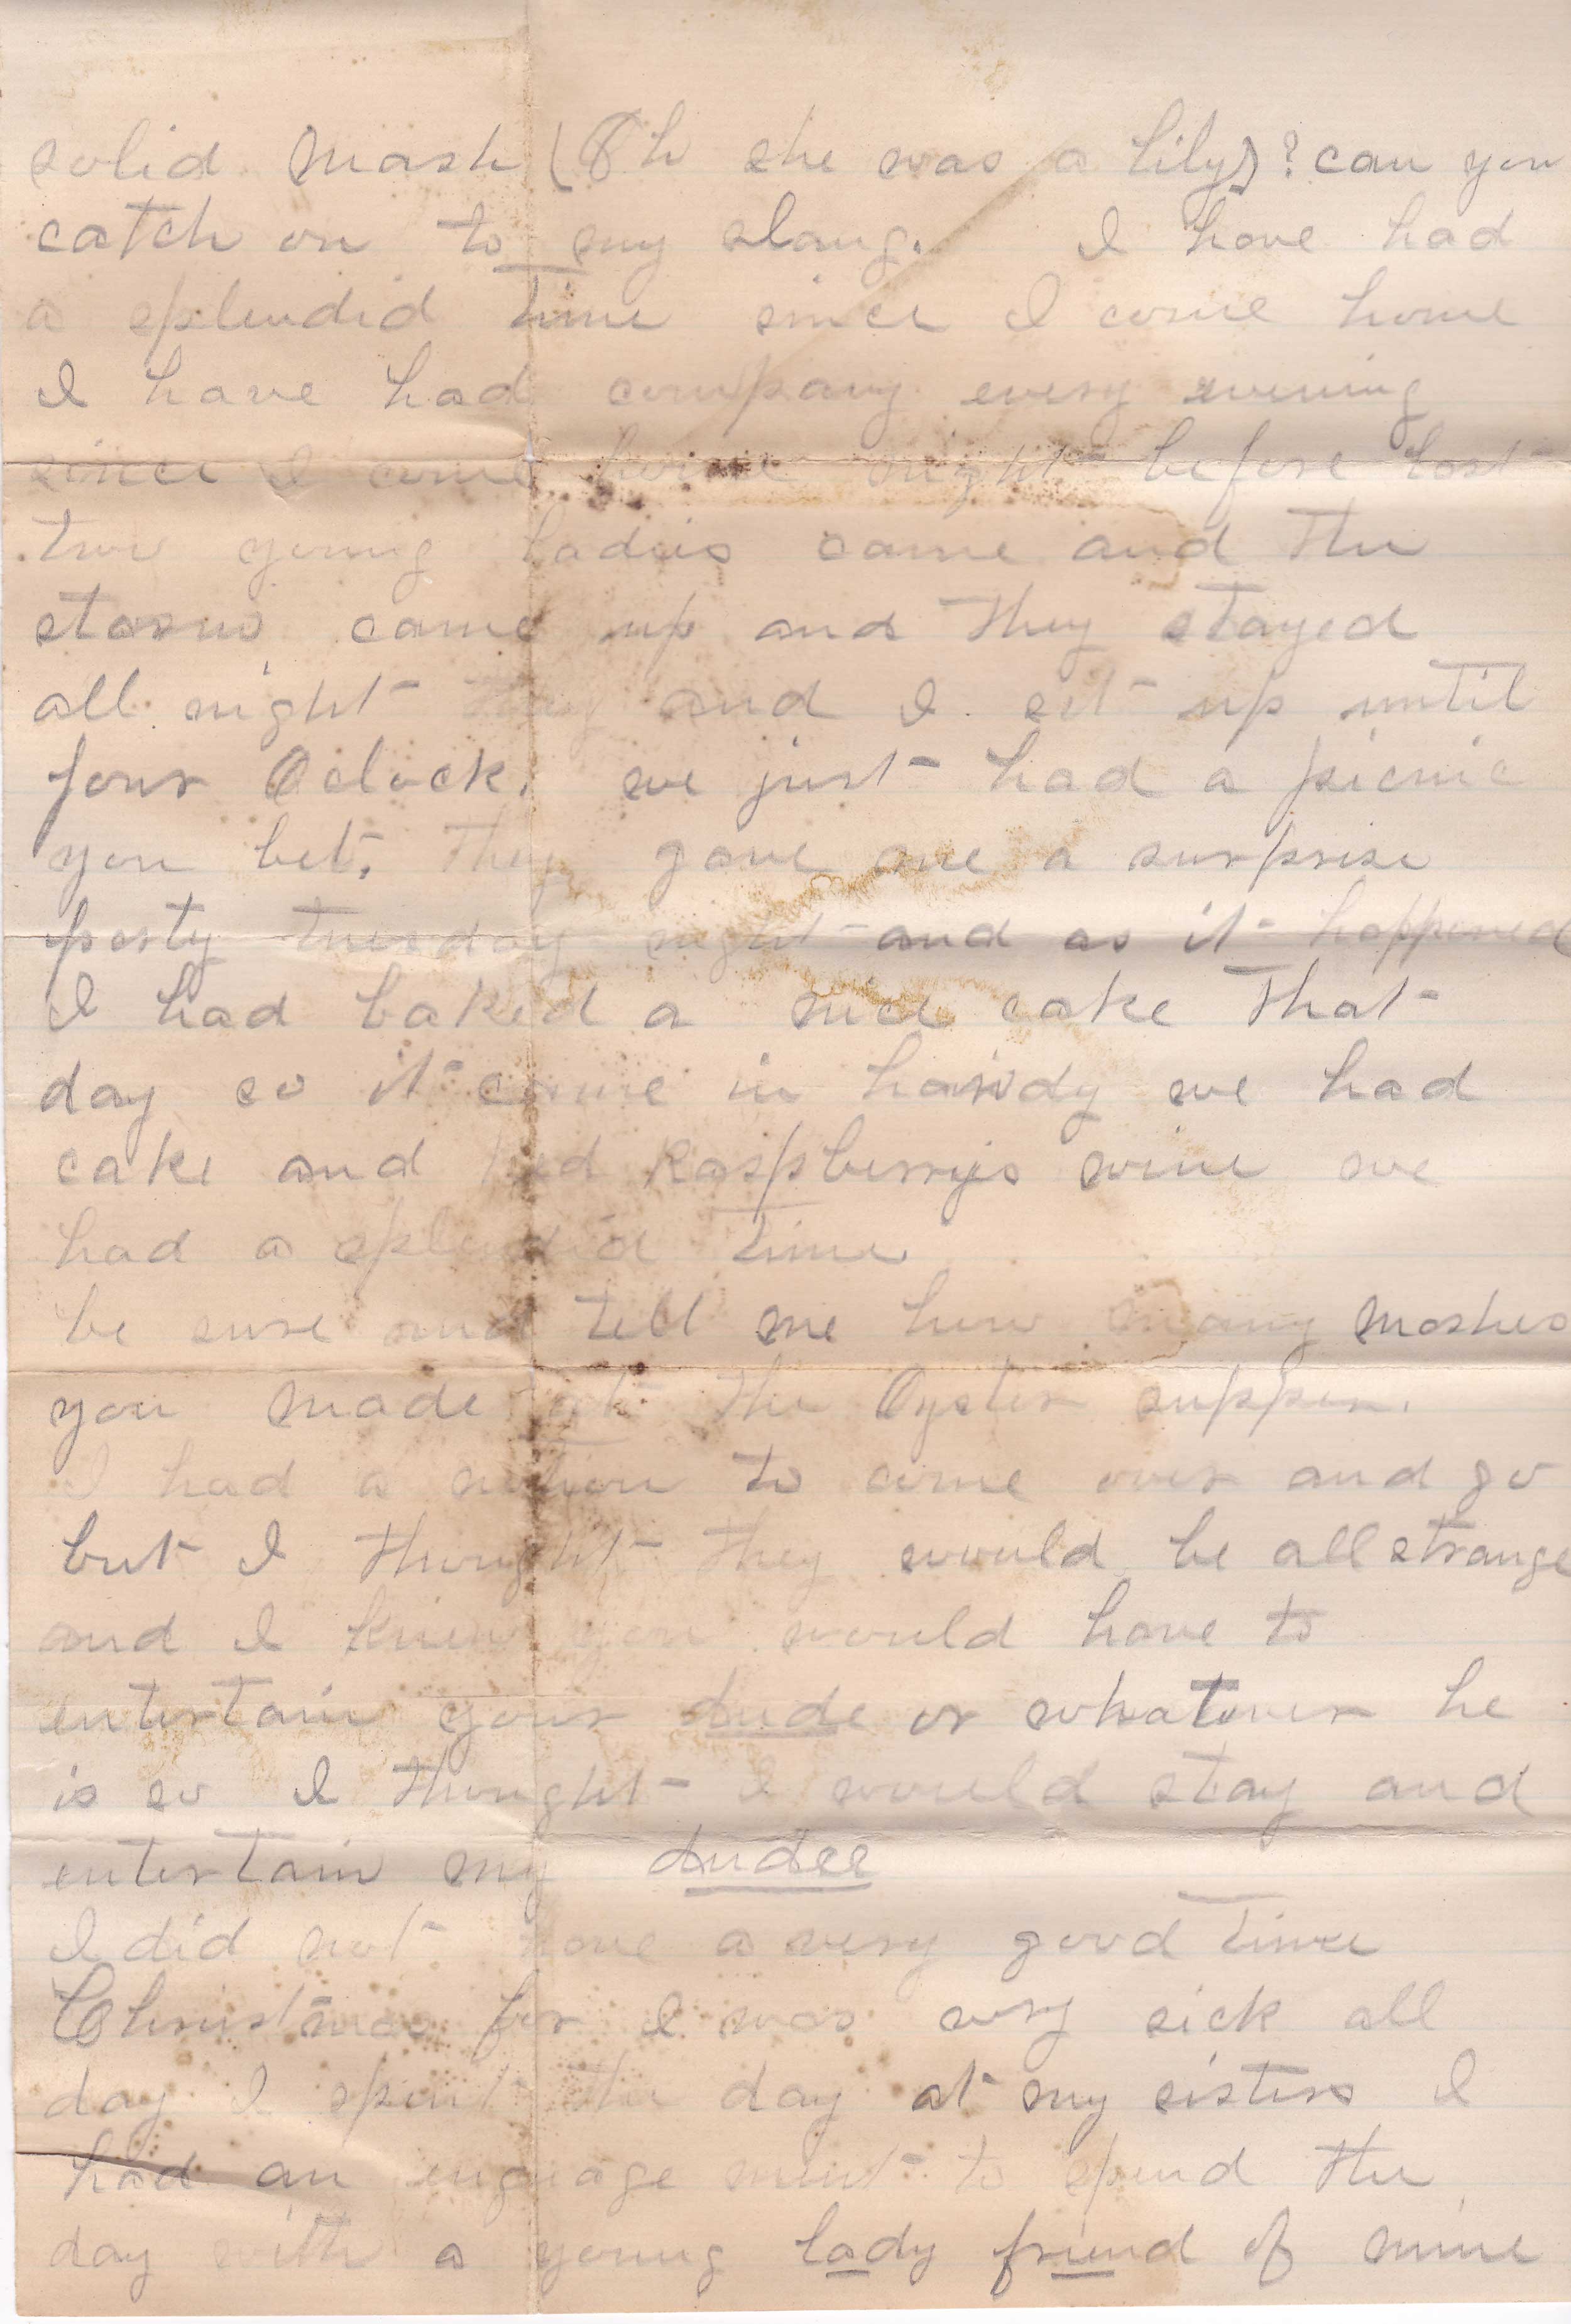 solid mash (Oh she was a lily)? can you
catch on to my slang. I have had
a splendid time since I come home
I have had company every evening
since I come home night before last
two young ladies came and the
storm came up and they stayed
all night they and I set up until
four Oclock. we just had a picnic
you bet. They gave me a surprise
party tuesday night and as it happened
I had baked a nice cake that
day so it come in handy we had
cake and red Raspberrys wine we
had a splendid time
be sure and tell me how many mashes
you made at the Oyster supper.
I had a notion to come over and go
but I thought they would be all strange
and I knew you would have to
entertain your dude or whatever he
is so I thought I would stay and
entertain my dudee
I did not have a very good time
Christmas for I was very sick all
day I spent the day at my sisters I
had an enguage ment to spend the
day with a young lady friend of mine